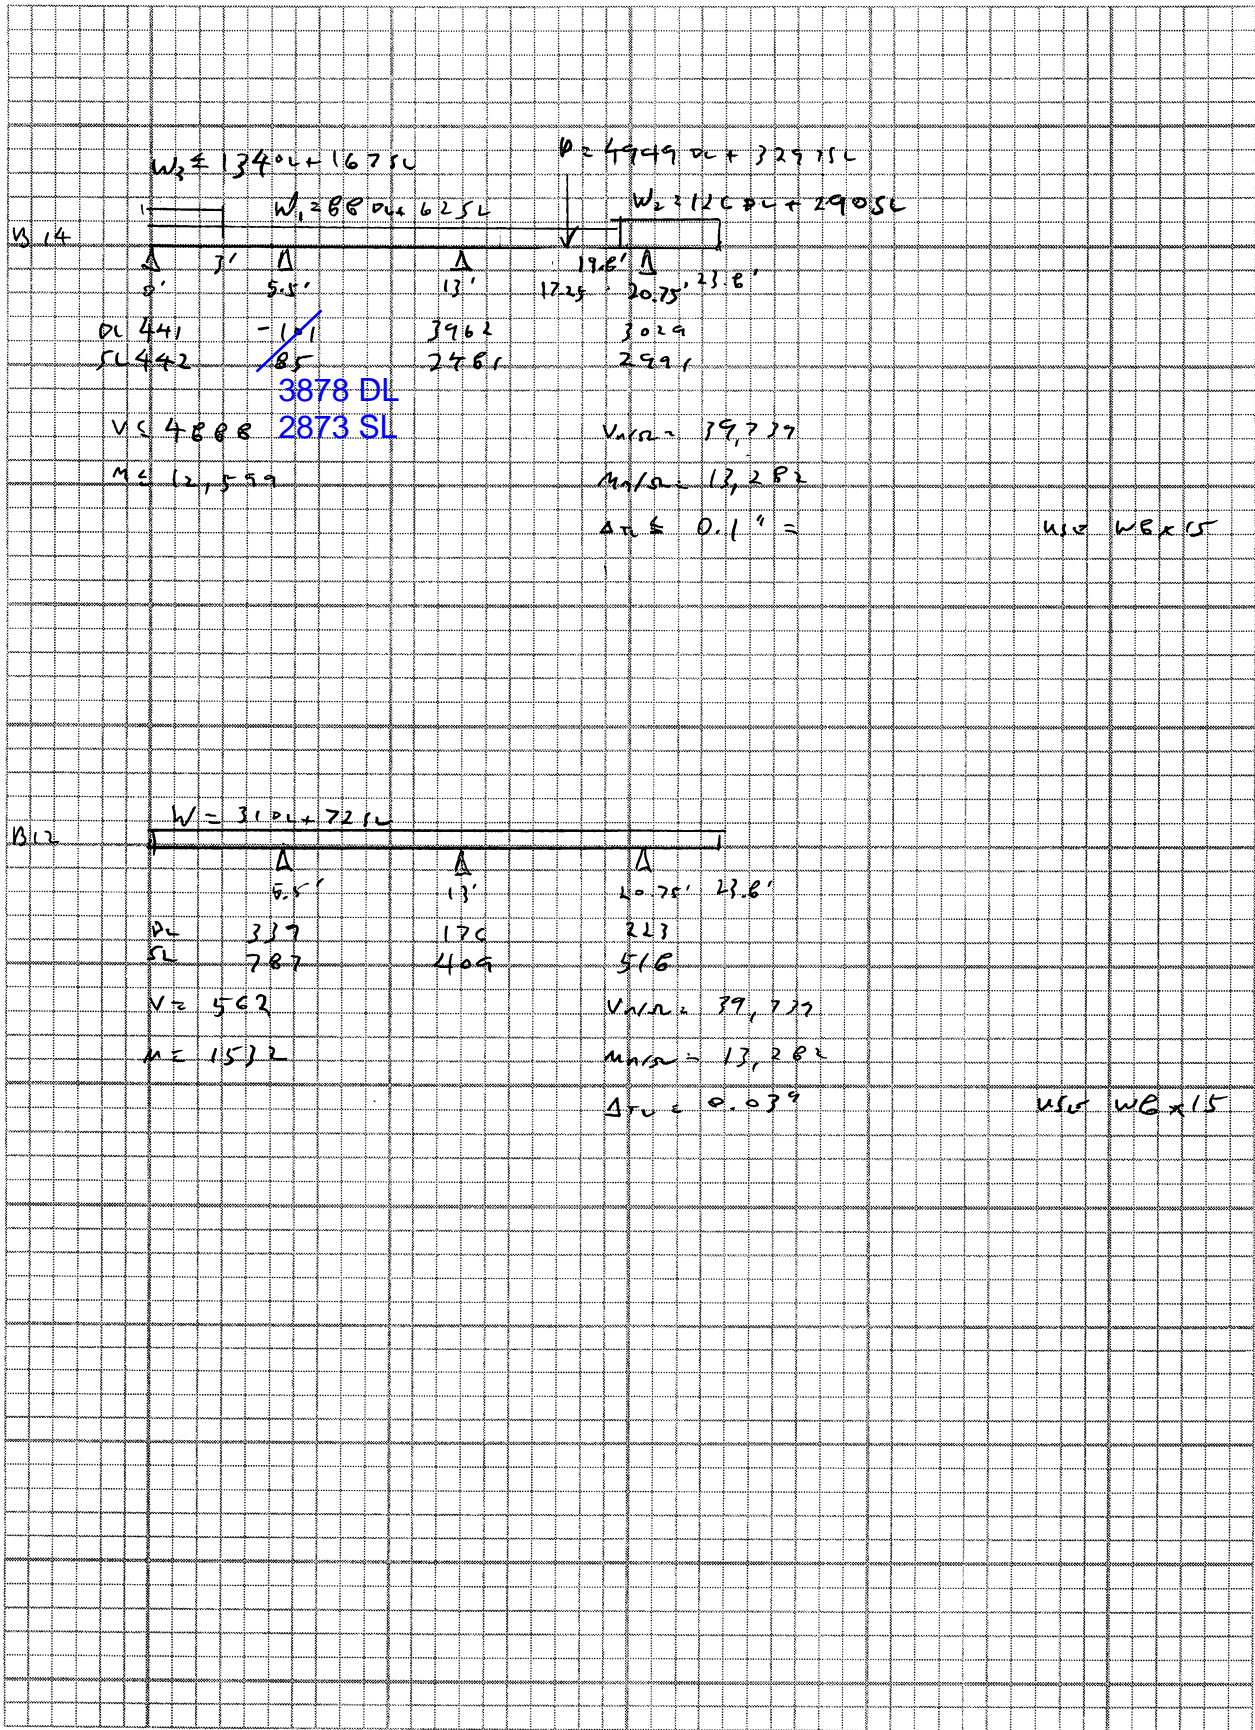 W₃ = 134 DL + 167 SL
P = 4949 DL + 3297 SL
W₁ = 88 DL + 62 SL
W₂ = 126 DL + 290 SL
B14
0' 3' 5.5' 13' 17.25 19.8' 20.75' 23.8'
DL 441 -101 3962 3029
SL 442 85 2481 2991
3878 DL
2873 SL
V ≤ 4888 Vn/Ω = 39,739
M ≤ 12,599 Mn/Ω = 13,282
ΔTL ≤ 0.1" = USE W8x15
W = 31 DL + 72 SL
B12
5.5' 13' 20.75' 23.8'
DL 339 176 223
SL 787 409 518
V = 562 Vn/Ω = 39,739
M = 1532 Mn/Ω = 13,282
ΔTL = 0.03" USE W8x15